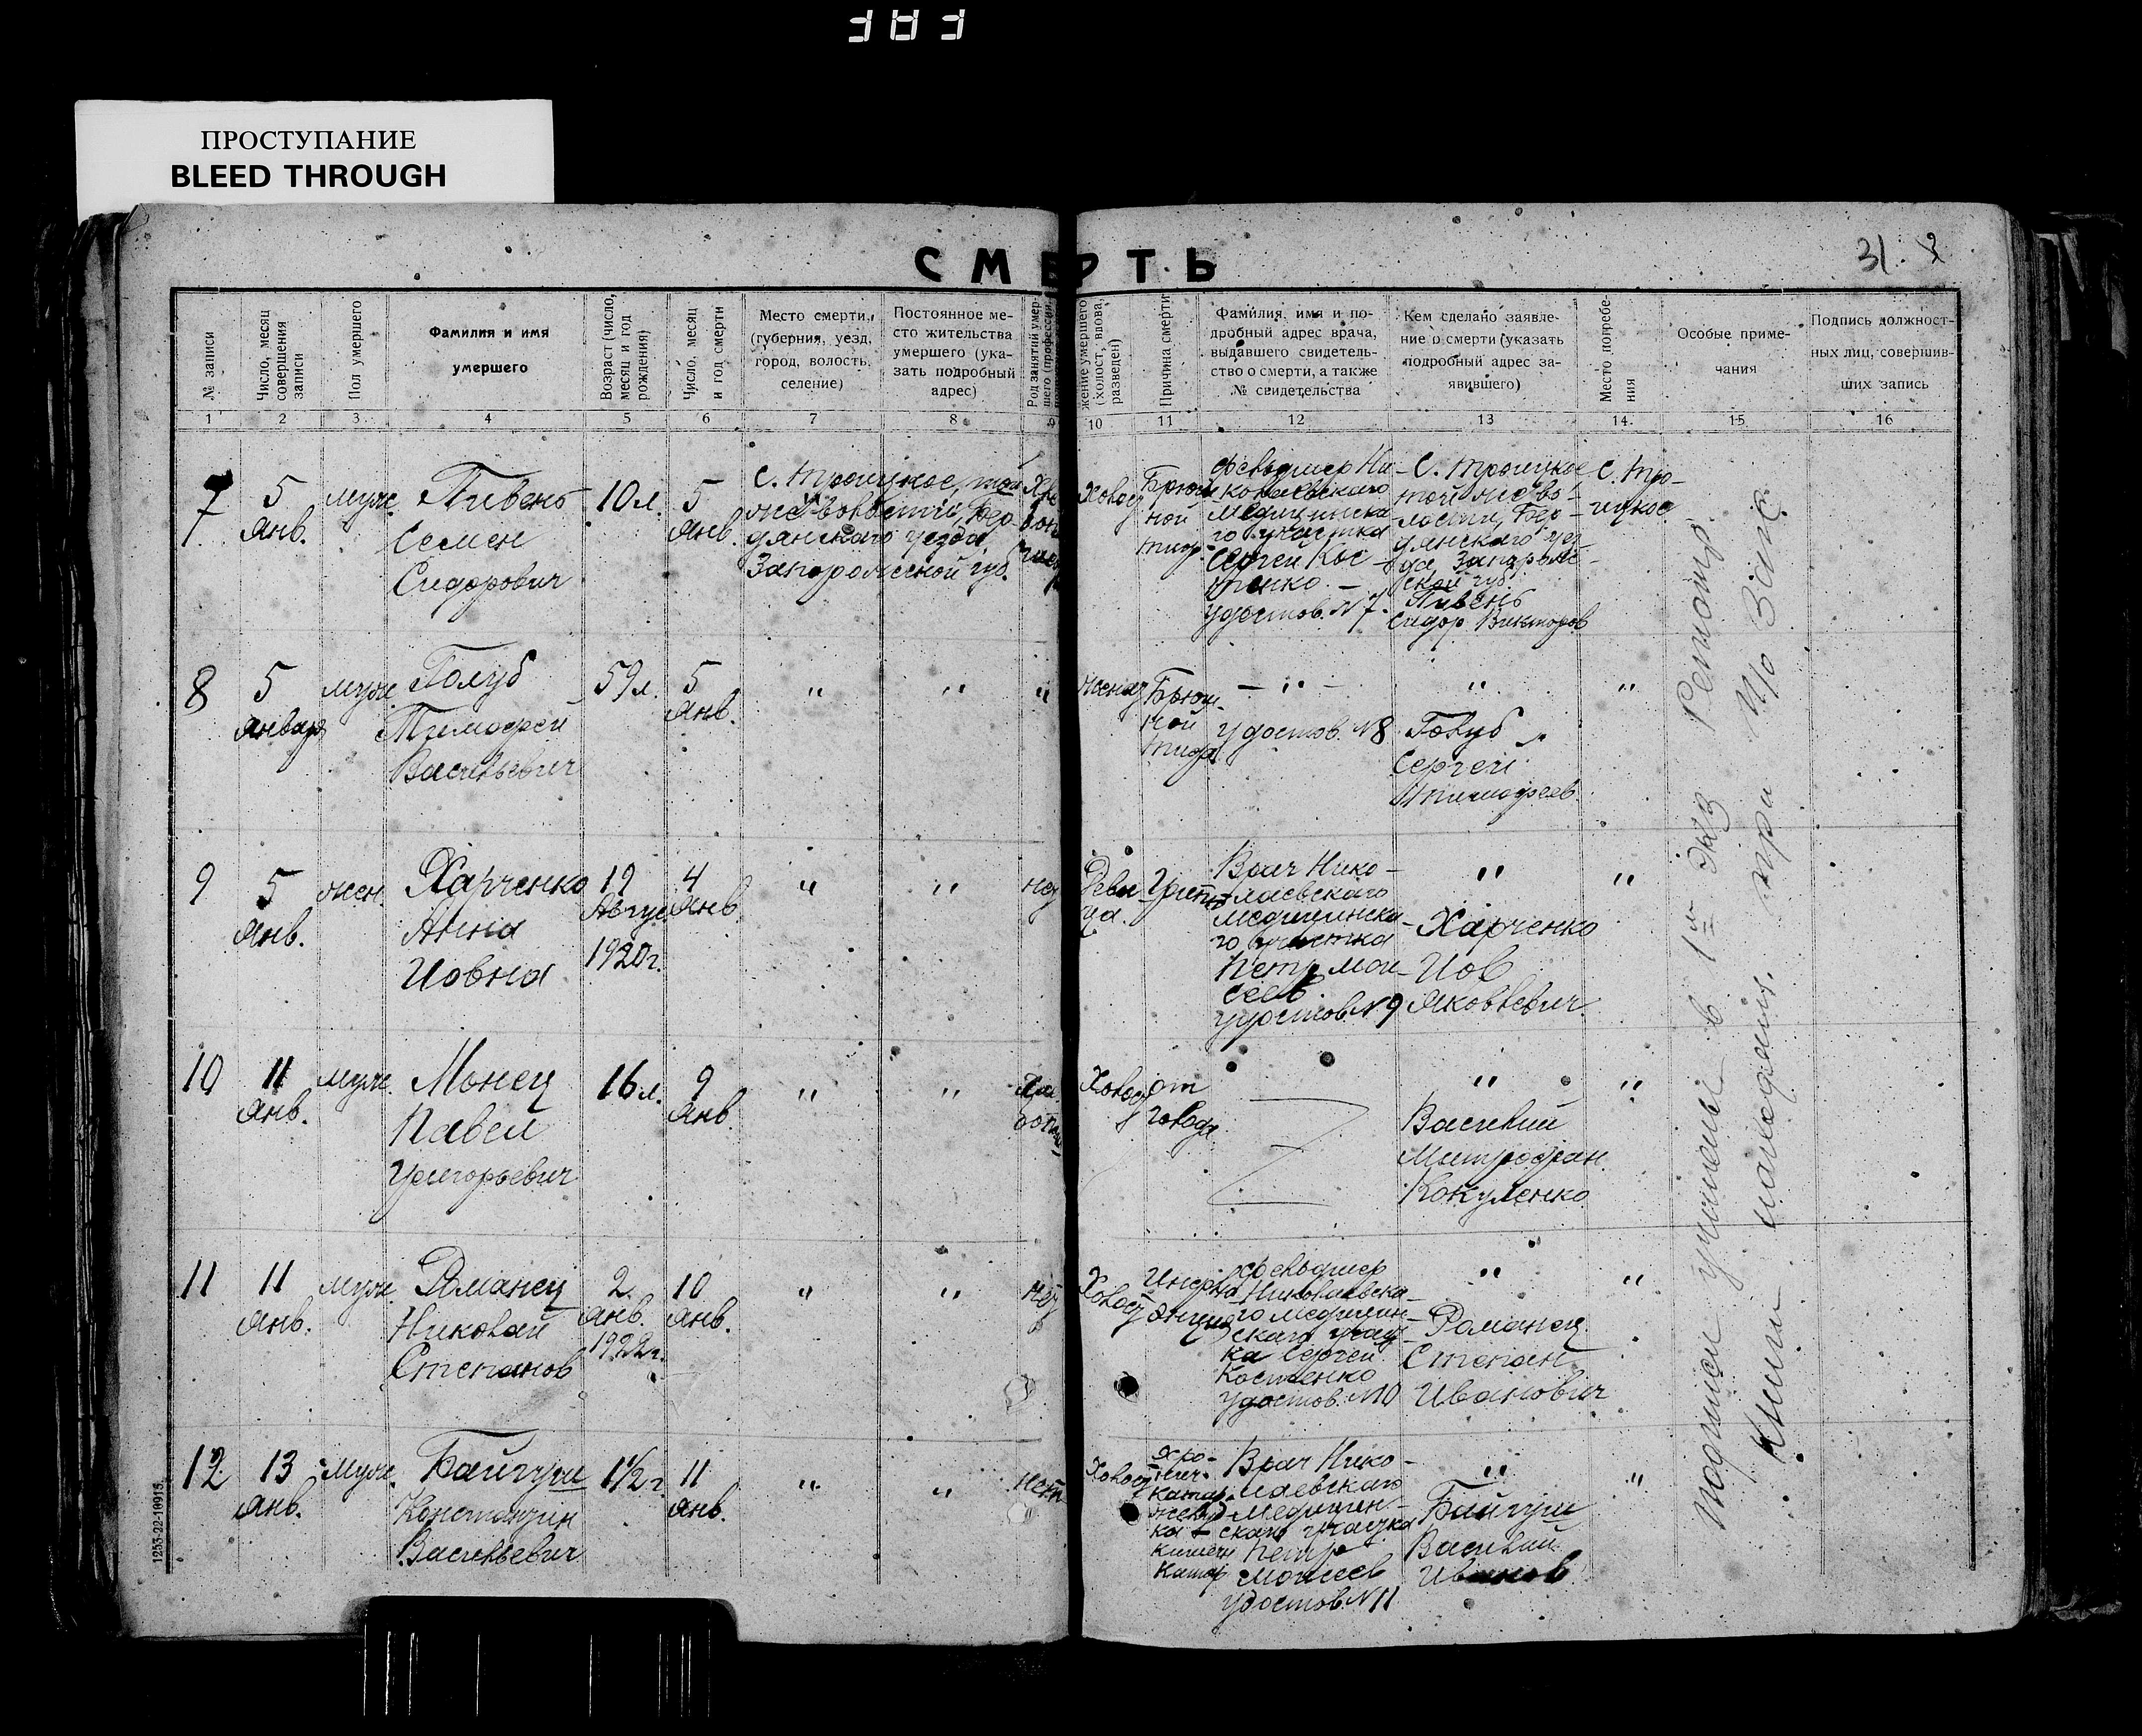 ПРОСТУПАНИЕ
BLEED THROUGH
СМЕРТЬ
31.
№ записи
Число, месяц совершения записи
Пол умершего
Фамилия и имя
умершего
Возраст (число, месяц и год рождения)
Число, месяц и год смерти
Место смерти, (губерния, уезд, город, волость, селение)
Постоянное место жительства умершего (указать подробный адрес)
Род занятий умершего (профессия,
жение умершего (холост, вдова, разведен)
Причина смерти
Фамилия, имя и подробный адрес врача, выдавшего свидетельство о смерти, а также № свидетельства
Кем сделано заявление о смерти (указать подробный адрес заявившего)
Место погребения
Особые примечания
Подпись должностных лиц, совершивших запись
1 2 3 4 5 6 7 8 9 10 11 12 13 14 15 16
7
5 Янв.
муж.
Пивень
Семен
Сидорович
10 л.
5 Янв.
с. Троицкое, той
же волости, Бер-
дянскаго уезда
Запорожской губ.
Холост
Брюш
ной
тиф.
Фельдшер Ни-
колаевскаго
медицинска
го участка
Сергей Кос-
тенко. —
удостов. N 7.
С. Троицкое
той же во-
лости, Бер-
дянскаго уез-
да, Запорож-
ской губ.
Пивень
Сидор Викторов
С. Тро-
ицкое
8
5 Января
муж.
Голуб
Тимофей
Васильевич
59 л.
5 Янв.
" " "
женат
Брюш-
ной
тиф
— " —
удостов. N 8
"
Голуб
Сергей
Тимофеев.
"
9
5 Янв.
жен.
Харченко
Анна
Иовна
19
Август
1920 г.
4 Янв.
" "
нет
Деви
ца.
Грипп
Врач Нико-
лаевскаго
медицинска
го участка
Петр Мои-
сеев.
удостов. N 9
"
Харченко
Иов
Яковлевич
"
10
11 Янв.
муж.
Монец
Павел
Григорьевич
16 л.
9 Янв.
" "
Холост
от
голода
"
Василий
Митрофан.
Кокуленко
"
11
11 Янв.
муж.
Романец
Николай
Степанов
2
Янв.
1922 г.
10 Янв.
" "
нет
Холост
Фельдшер
Николаевска-
го медицин-
скаго участ-
ка Сергей
Костенко
удостов. N 10
"
Романец
Степан
Иванович
"
12
13 Янв.
муж.
Байгуш
Константин
Васильевич
1 1/2 г.
11 Янв.
" "
нет
Холост
хро-
нич.
катар.
желуд-
ка и
кишечн
катар
Врач Нико-
лаевскаго
медицин-
скаго участка
Петр
Моисеев
удостов. N 11
"
Байгуш
Василий
Иванов
"
учтены в 1ой экз Регистр.
Книги находящ. при
1253-22-10915